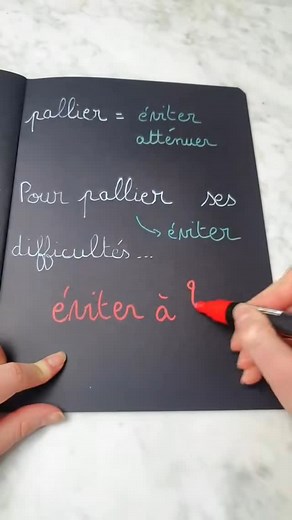 pallier = éviter
atténuer
Pour pallier ses
éviter
difficultés...
éviter à